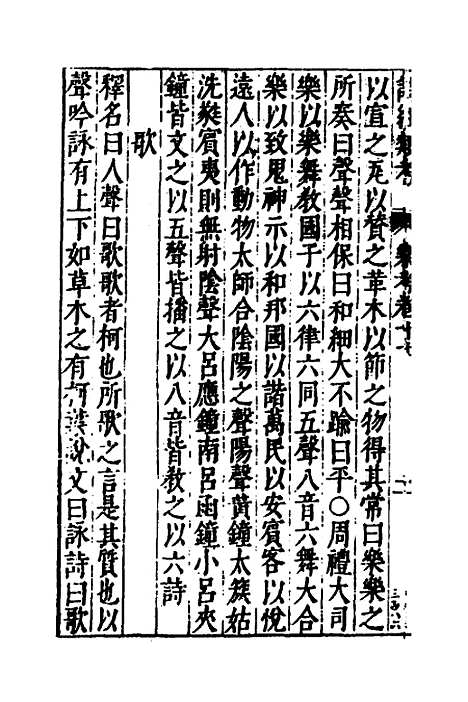 以宣之瓦以贊之革木以節之物得其常曰樂樂之
所奏曰聲聲相保曰和細大不踰曰平○周禮大司
樂以樂舞教國子以六律六同五聲八音六舞大合
樂以致鬼神示以和邦國以諧萬民以安賓客以悅
遠人以作動物太師合陰陽之聲陽聲黃鐘太簇姑
洗㽔賓夷則無射陰聲大呂應鐘南呂函鐘小呂夾
鐘皆文之以五聲皆播之以八音皆教之以六詩
歌
釋名曰人聲曰歌歌者柯也所歌之言是其質也以
聲吟詠有上下如草木之有柯葉說文曰詠詩曰歌